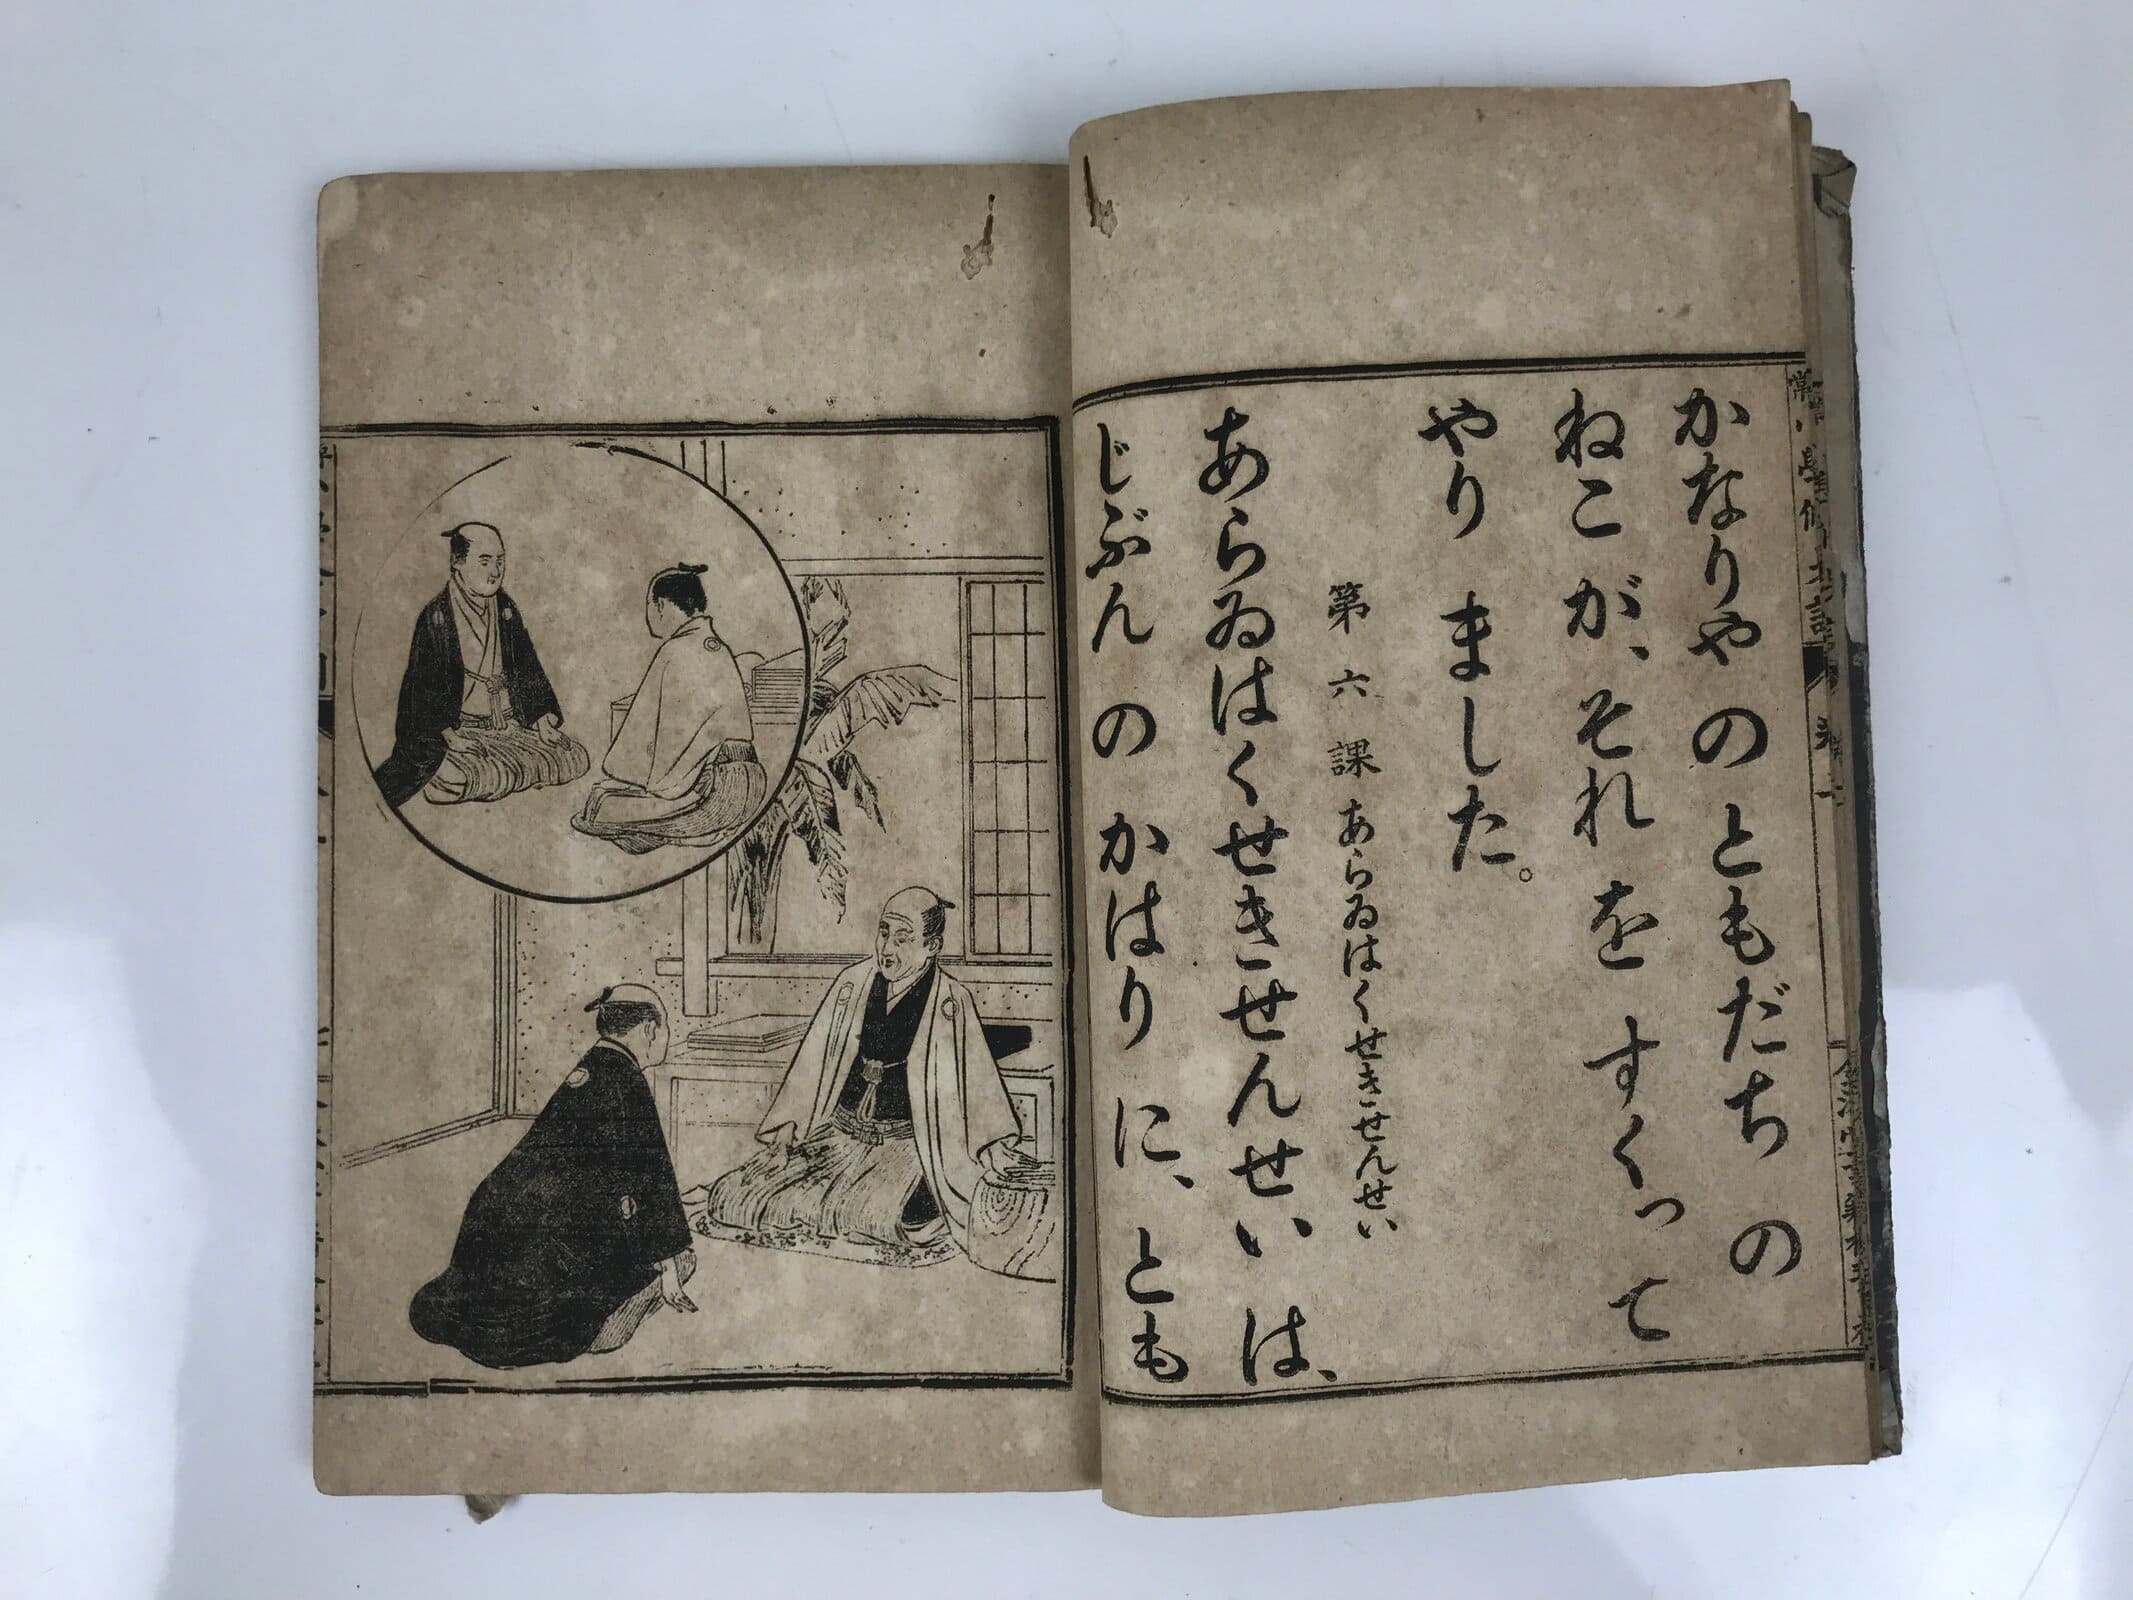 かなりや の ともだち の
ねこ が、それ を すくって
やり ました。
第六課 あらゐはくせきせんせい
あらゐはくせきせんせい は、
じぶん の かはり に、とも